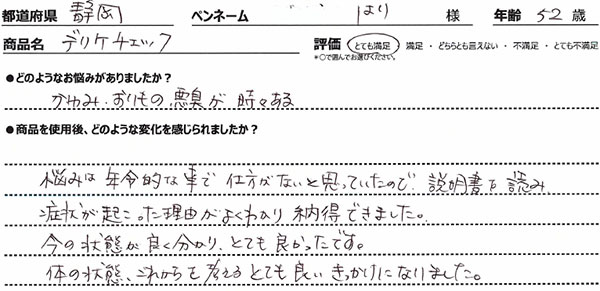 都道府県 静岡 ペンネーム はり 様 年齢 52 歳
商品名 デリケチェック 評価 とても満足 ・ 満足 ・ どちらとも言えない ・ 不満足 ・ とても不満足
*○で囲んでお選びください。
●どのようなお悩みがありましたか？
かゆみ・おりもの、悪臭が時々ある
●商品を使用後、どのような変化を感じられましたか？
悩みは年令的な事で仕方がないと思っていたので、説明書を読み、
症状が起こった理由がよくわかり納得できました。
今の状態が良く分かり、とても良かったです。
体の状態、これからを考えるとても良いきっかけになりました。